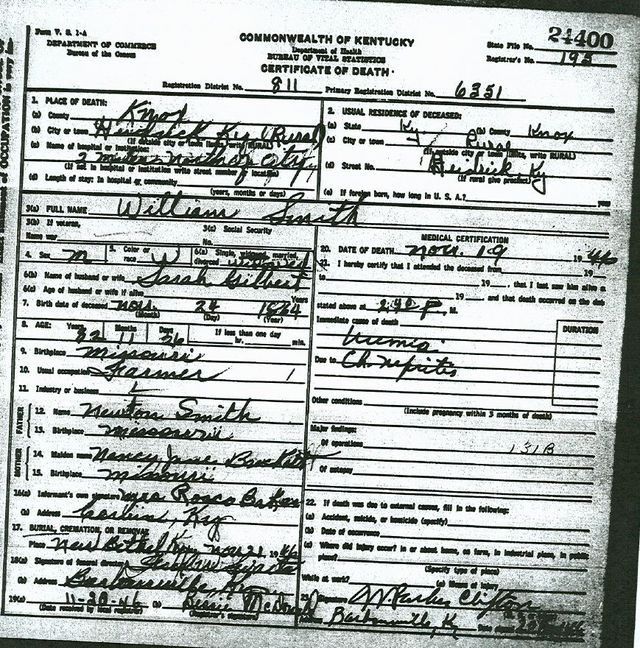 Form V. S. 1-A
DEPARTMENT OF COMMERCE
Bureau of the Census
COMMONWEALTH OF KENTUCKY
Department of Health
BUREAU OF VITAL STATISTICS
CERTIFICATE OF DEATH
State File No. 24400
Registrar's No. 195
Registration District No. 811 Primary Registration District No. 6351
1. PLACE OF DEATH:
(a) County Knox
(b) City or town Heidrick Ky (Rural)
(If outside city or town limits, write RURAL)
(c) Name of hospital or institution:
2 miles north of City
(If not in hospital or institution write street number or location)
(d) Length of stay: In hospital or community
(years, months or days)
2. USUAL RESIDENCE OF DECEASED:
(a) State Ky (b) County Knox
(c) City or town Rural
(If outside city or town limits, write RURAL)
(d) Street No. Heidrick Ky
(If rural give precinct)
(e) If foreign born, how long in U. S. A.? years
3(a) FULL NAME William Smith
3(b) If veteran,
Name war
3(c) Social Security
No.
4. Sex M 5. Color or race W 6(a) Single, widowed, married, divorced
6(b) Name of husband or wife Sarah Gilbert
6(c) Age of husband or wife if alive Years
7. Birth date of deceased Nov. 24 1864
(Month) (Day) (Year)
8. AGE: Years Months Days If less than one day
82 11 26 hr. min.
9. Birthplace Missouri
10. Usual occupation Farmer
11. Industry or business
FATHER
12. Name Newton Smith
13. Birthplace Missouri
MOTHER
14. Maiden name Nancy Jane
15. Birthplace Missouri
16(a) Informant's own signature Mrs Rosco Baker
(b) Address Corbin, Ky
17. BURIAL, CREMATION, OR REMOVAL
Place New Bethel Ky Nov 21 1946
18(a) Signature of funeral director
(b) Address Barbourville, Ky
19(a) 11-20-46 (b) Bessie McDonald
(Date received by local registrar) (Registrar's signature)
MEDICAL CERTIFICATION
20. DATE OF DEATH Nov. 19 1946
21. I hereby certify that I attended the deceased from 19
to 19, that I last saw him alive
19 and that death occurred on the date
stated above at 2:30 P. M.
Immediate cause of death DURATION
Uremia
Due to Ch. Nepritis
Other conditions
(Include pregnancy within 3 months of death)
Major findings:
Of operations
131B
Of autopsy
22. If death was due to external causes, fill in the following:
(a) Accident, suicide, or homicide (specify)
(b) Date of occurrence
(c) Where did injury occur? in or about home, on farm, in industrial place, in public
place?
(Specify type of place)
While at work? (e) Means of injury
23. Signature Parker Clifton
Barbourville, K